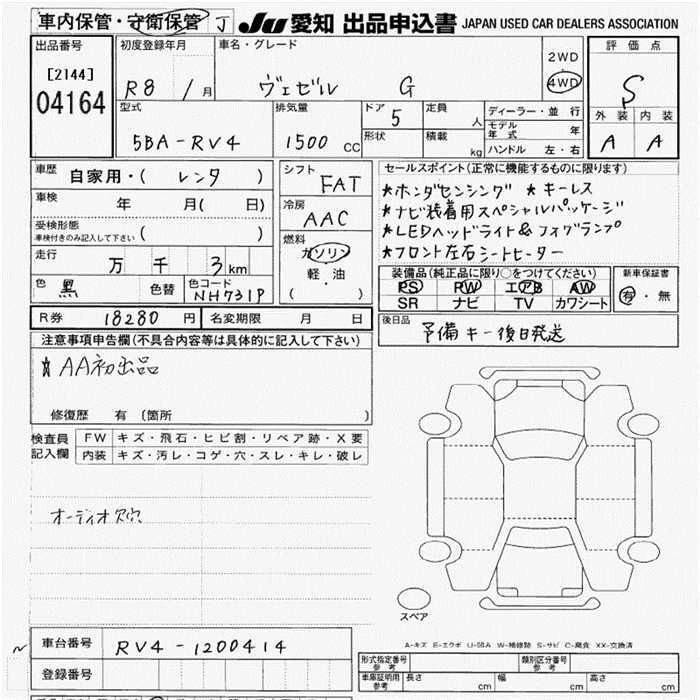 車内保管・守衛保管 J JU 愛知 出品申込書 JAPAN USED CAR DEALERS ASSOCIATION
出品番号 初度登録年月 車名・グレード 評価点
[2144] R8 / 1月 ヴェゼル G 2WD 4WD S
04164
型式 排気量 ドア 定員 ディーラー・並行 外装 内装
5BA-RV4 1500 CC 5 人 モデル年式 年 A A
形状 積載 kg ハンドル 左・右
車歴 自家用・( レンタ ) シフト FAT セールスポイント(正常に機能するものに限ります)
車検 年 月( 日) 冷房 AAC ★ホンダセンシング ★キーレス
★ナビ装着用スペシャルパッケージ
受検形態 ( )
車検付きのみ記入して下さい
燃料 ガソリン ★LEDヘッドライト&フォグランプ
走行 万 千 3km 軽・油 ★フロント左右シートヒーター
( )
色 黒 色替 色コード NH731P
装備品(純正品に限り○をつけてください) 新車保証書
PS PW エアB AW 有・無
SR ナビ TV カワシート
R券 18280円 名変期限 月 日
後日品 予備キー後日発送
注意事項申告欄(不具合内容等は具体的に記入して下さい)
★AA初出品
修復歴 有 (箇所 )
検査員記入欄 FW キズ・飛石・ヒビ割・リペア跡・X要
内装 キズ・汚レ・コゲ・穴・スレ・キレ・破レ
オーディオ欠穴
スペア
A-キズ E-エクボ U-凹み W-補修跡 S-サビ C-腐食 XX-交換済
車台番号 RV4-1200414
形式指定番号 参考 類別区分番号 参考
登録番号
車庫証明用 参考 長さ cm 幅 cm 高さ cm